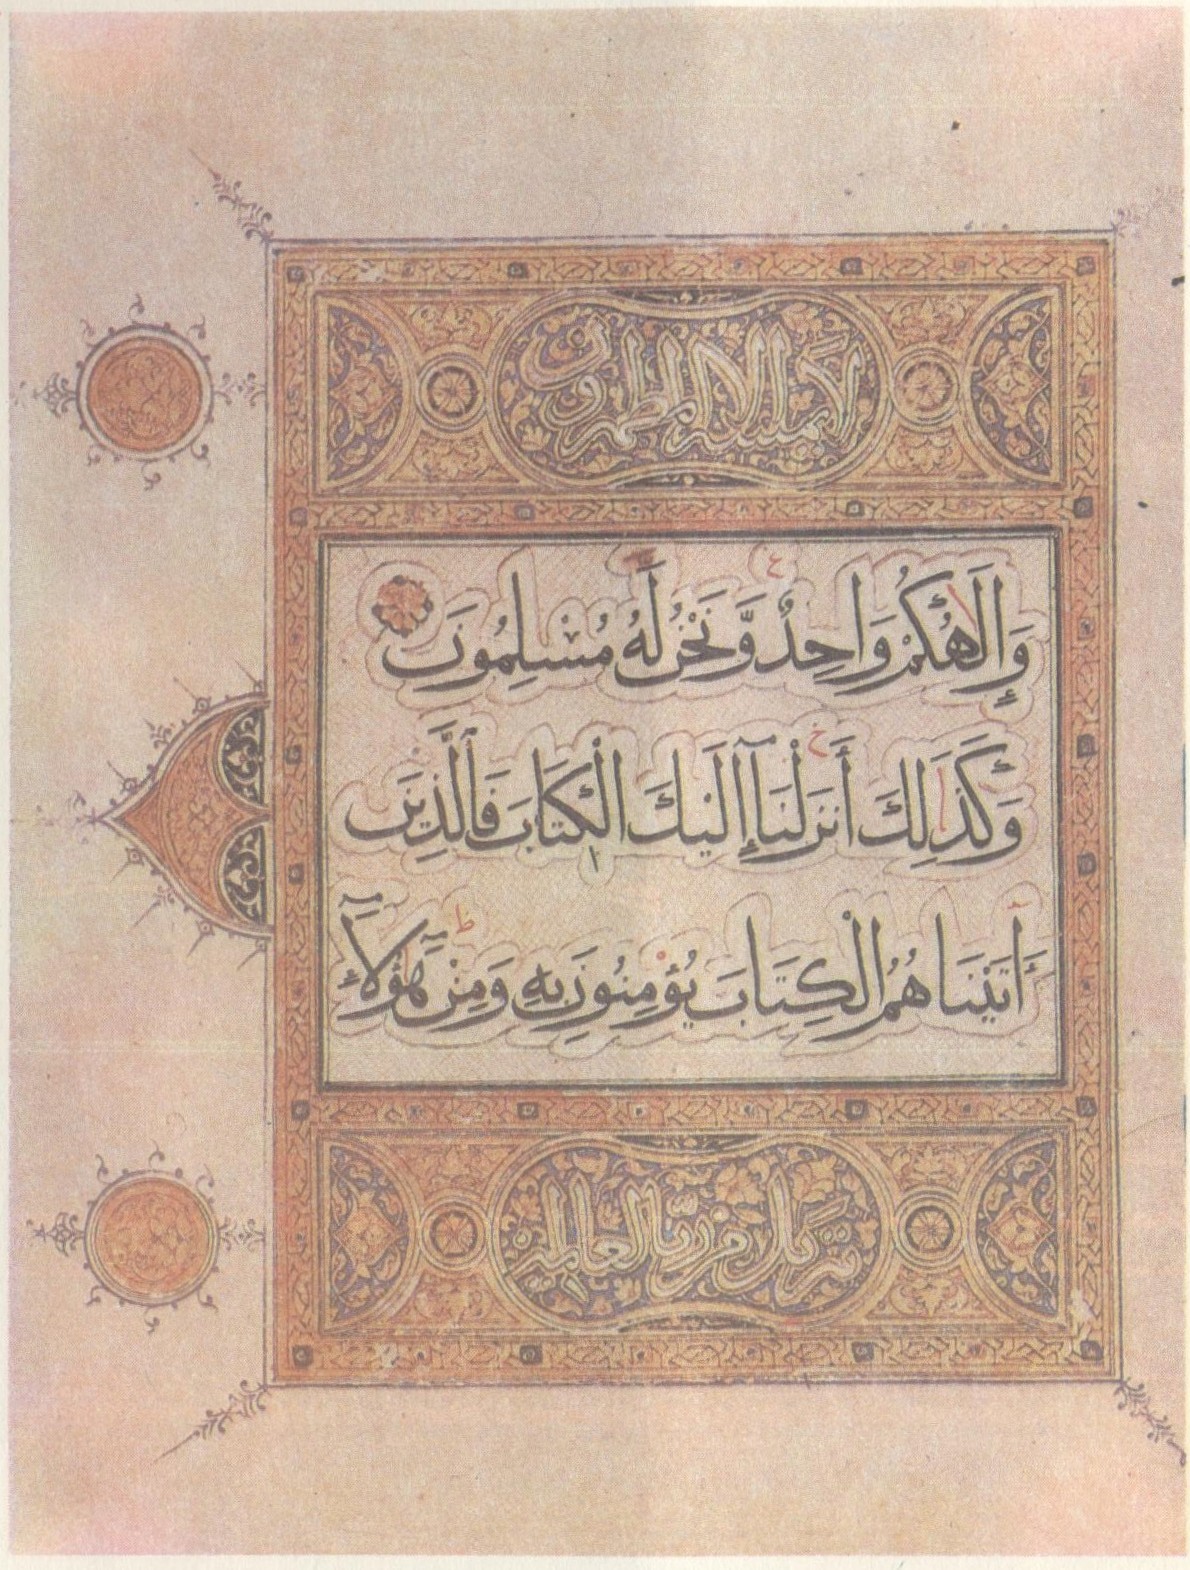 لا يمسه إلا المطهرون
وَإِلَٰهُكُمْ وَاحِدٌ وَّنَحْنُ لَهُ مُسْلِمُونَ
وَكَذَٰلِكَ أَنزَلْنَآ إِلَيْكَ الْكِتَابَ فَالَّذِينَ
أَتَيْنَاهُمُ الْكِتَابَ يُؤْمِنُونَ بِهِ وَمِنْ هَٰٓؤُلَآءِ
تنزيل من رب العالمين